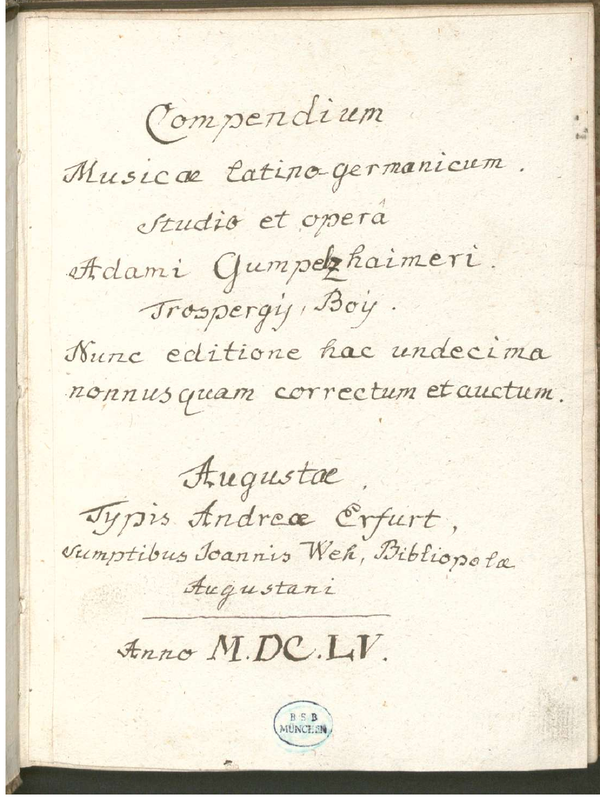 Compendium
Musicæ latino germanicum.
studio et operâ
Adami Gumpelzhaimeri.
Trospergij, Boij.
Nunc editione hac undecima
nonnusquam correctum et auctum.
Augustæ,
Typis Andreæ Erfurt,
sumptibus Ioannis Weh, Bibliopolæ
Augustani
Anno M.DC.LV.
BSB
MÜNCHEN